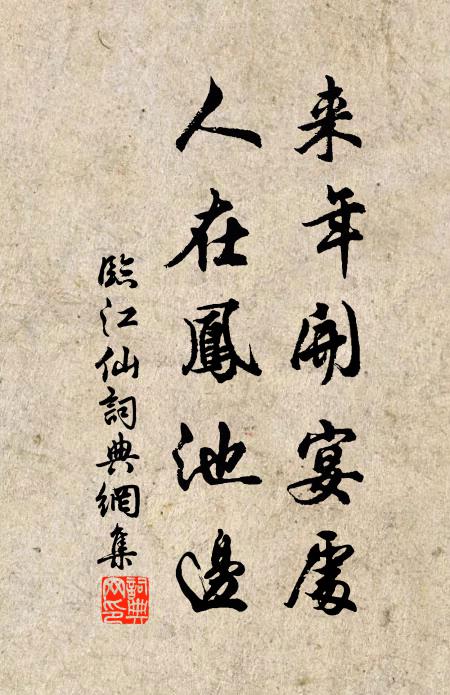 来年開宴處
人在鳳池邊
臨江仙詞典網集
詞典